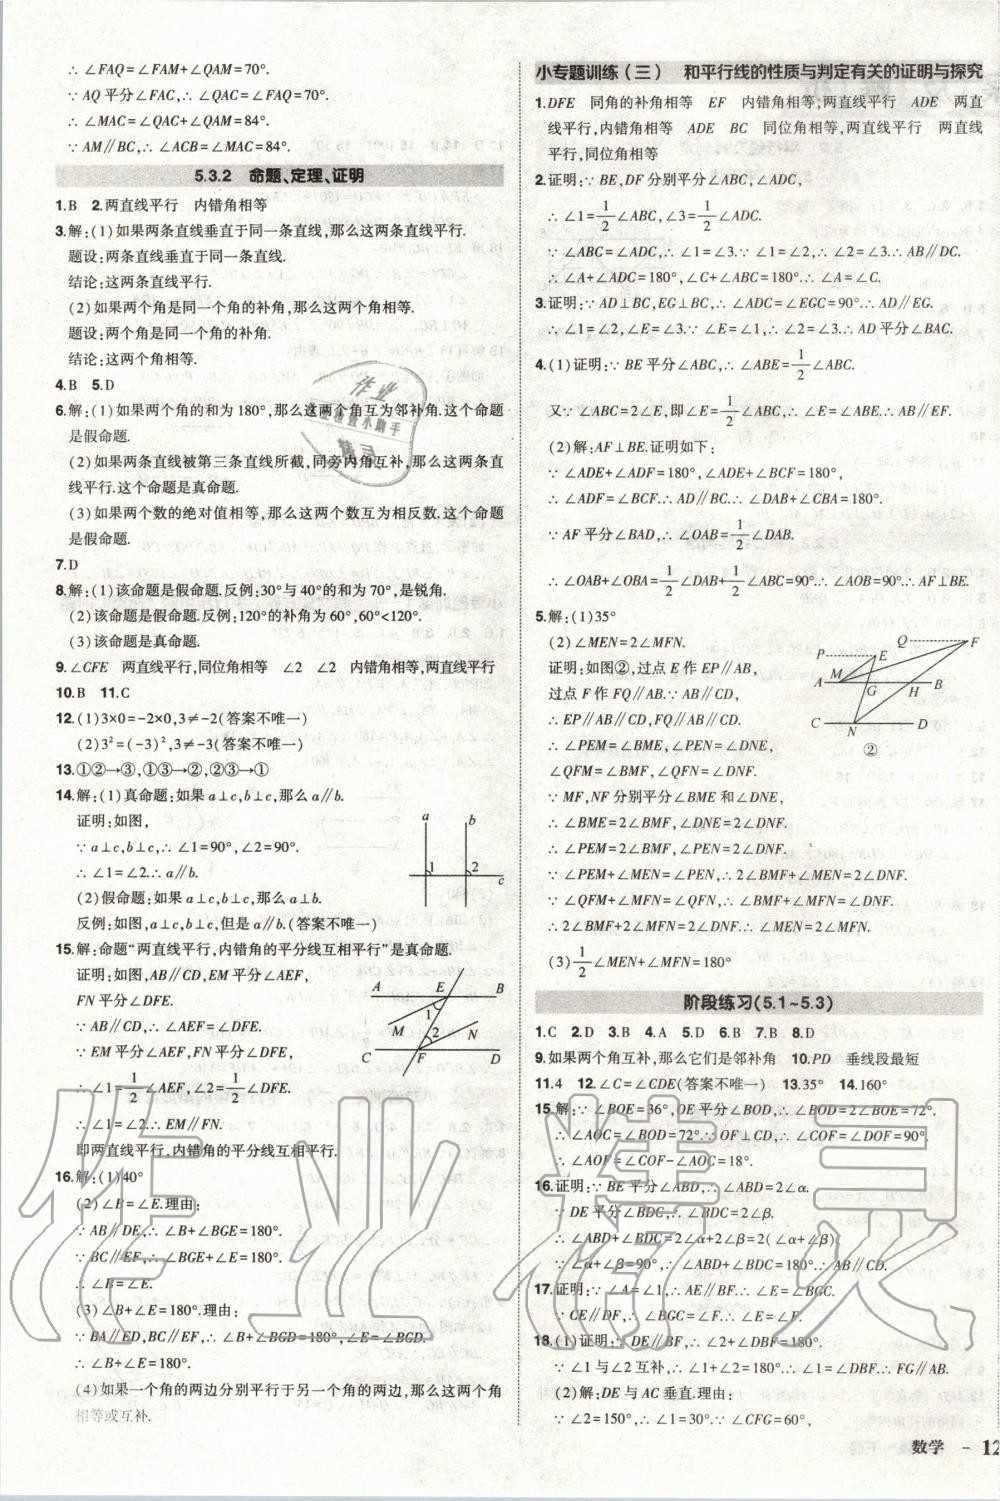 ∴∠FAQ=∠FAM+∠QAM=70°.
∵AQ平分∠FAC,∴∠QAC=∠FAQ=70°.
∴∠MAC=∠QAC+∠QAM=84°.
∵AM∥BC,∴∠ACB=∠MAC=84°.
5.3.2 命题、定理、证明
1.B 2.两直线平行 内错角相等
3.解:(1)如果两条直线垂直于同一条直线,那么这两条直线平行.
题设:两条直线垂直于同一条直线.
结论:这两条直线平行.
(2)如果两个角是同一个角的补角,那么这两个角相等.
题设:两个角是同一个角的补角.
结论:这两个角相等.
4.B 5.D
6.解:(1)如果两个角的和为180°,那么这两个角互为邻补角.这个命题
是假命题.
(2)如果两条直线被第三条直线所截,同旁内角互补,那么这两条直
线平行.这个命题是真命题.
(3)如果两个数的绝对值相等,那么这两个数互为相反数.这个命题
是假命题.
7.D
8.解:(1)该命题是假命题.反例:30°与40°的和为70°,是锐角.
(2)该命题是假命题.反例:120°的补角为60°,60°<120°.
(3)该命题是真命题.
9.∠CFE 两直线平行,同位角相等 ∠2 ∠2 内错角相等,两直线平行
10.B 11.C
12.(1)3×0=-2×0,3≠-2(答案不唯一)
(2)3²=(-3)²,3≠-3(答案不唯一)
13.①②→③,①③→②,②③→①
14.解:(1)真命题:如果a⊥c,b⊥c,那么a∥b.
证明:如图,
∵a⊥c,b⊥c,∴∠1=90°,∠2=90°.
∴∠1=∠2.∴a∥b.
(2)假命题:如果a⊥c,b⊥c,那么a⊥b.
反例:如图,a⊥c,b⊥c,但是a∥b.(答案不唯一)
a b
1 2
c
15.解:命题“两直线平行,内错角的平分线互相平行”是真命题.
证明:如图,AB∥CD,EM平分∠AEF,
FN平分∠DFE.
∵AB∥CD,∴∠AEF=∠DFE.
∵EM平分∠AEF,FN平分∠DFE,
∴∠1=1/2∠AEF,∠2=1/2∠DFE.
∴∠1=∠2.∴EM∥FN.
即两直线平行,内错角的平分线互相平行.
A E B
1
M 2 N
C F D
16.解:(1)40°
(2)∠B=∠E.理由:
∵AB∥DE,∴∠B+∠BGE=180°.
∵BC∥EF,∴∠BGE+∠E=180°.
∴∠B=∠E.
(3)∠B+∠E=180°.理由:
∵BA∥ED,BC∥EF,∴∠B+∠BGD=180°,∠E=∠BGD.
∴∠B+∠E=180°.
(4)如果一个角的两边分别平行于另一个角的两边,那么这两个角
相等或互补.
小专题训练(三) 和平行线的性质与判定有关的证明与探究
1.DFE 同角的补角相等 EF 内错角相等,两直线平行 ADE 两直
线平行,内错角相等 ADE BC 同位角相等,两直线平行 两直线
平行,同位角相等
2.证明:∵BE,DF分别平分∠ABC,∠ADC,
∴∠1=1/2∠ABC,∠3=1/2∠ADC.
∵∠ABC=∠ADC,∴∠1=∠3.∵∠1=∠2,∴∠2=∠3.∴AB∥DC.
∴∠A+∠ADC=180°,∠C+∠ABC=180°.∴∠A=∠C.
3.证明:∵AD⊥BC,EG⊥BC,∴∠ADC=∠EGC=90°.∴AD∥EG.
∴∠1=∠2,∠E=∠3.∵∠E=∠1,∴∠2=∠3.∴AD平分∠BAC.
4.(1)证明:∵BE平分∠ABC,∴∠ABE=1/2∠ABC.
又∵∠ABC=2∠E,即∠E=1/2∠ABC,∴∠E=∠ABE.∴AB∥EF.
(2)解:AF⊥BE.证明如下:
∵∠ADE+∠ADF=180°,∠ADE+∠BCF=180°,
∴∠ADF=∠BCF.∴AD∥BC.∴∠DAB+∠CBA=180°.
∵AF平分∠BAD,∴∠OAB=1/2∠DAB.
∴∠OAB+∠OBA=1/2∠DAB+1/2∠ABC=90°.∴AF⊥BE.
5.解:(1)35°
(2)∠MEN=2∠MFN.
证明:如图②,过点E作EP∥AB,
过点F作FQ∥AB.∵AB∥CD,
∴EP∥AB∥CD,FQ∥AB∥CD.
∴∠PEM=∠BME,∠PEN=∠DNE.
∠QFM=∠BMF,∠QFN=∠DNF.
∵MF,NF分别平分∠BME和∠DNE,
∴∠BME=2∠BMF,∠DNE=2∠DNF.
∴∠PEM=2∠BMF,∠PEN=2∠DNF.
∵∠PEM+∠MEN=∠PEN,∴2∠BMF+∠MEN=2∠DNF.
∵∠QFM+∠MFN=∠QFN,∴∠BMF+∠MFN=∠DNF.
∴2∠BMF+2∠MFN=2∠DNF.∴∠MEN=2∠MFN.
(3)1/2∠MEN+∠MFN=180°
Q F
P E
A M G H B
C N D
②
阶段练习(5.1~5.3)
1.C 2.D 3.B 4.A 5.D 6.B 7.B 8.D
9.如果两个角互补,那么它们是邻补角 10.PD 垂线段最短
11.4 12.∠C=∠CDE(答案不唯一) 13.35° 14.160°
15.解:∵∠BOE=36°,OE平分∠BOD,∴∠BOD=2∠BOE=72°.
∴∠AOC=∠BOD=72°.∵OF⊥CD,∴∠COF=∠DOF=90°.
∴∠AOF=∠COF-∠AOC=18°.
16.证明:∵BE平分∠ABD,∴∠ABD=2∠α.
∵DE平分∠BDC,∴∠BDC=2∠β.
∴∠ABD+∠BDC=2∠α+2∠β=2(∠α+∠β).
∵∠α+∠β=90°,∴∠ABD+∠BDC=180°.∴AB∥CD.
17.证明:∵∠A=∠1,∴AE∥BF.∴∠E=∠BGC.
∵CE∥DF,∴∠BGC=∠F.∴∠E=∠F.
18.(1)证明:∵DE∥BF,∴∠2+∠DBF=180°.
∵∠1与∠2互补,∴∠1+∠2=180°.∴∠1=∠DBF.∴FG∥AB.
(2)解:DE与AC垂直.理由:
∵∠2=150°,∴∠1=30°.∵∠CFG=60°,
数学 - 12
作业精灵